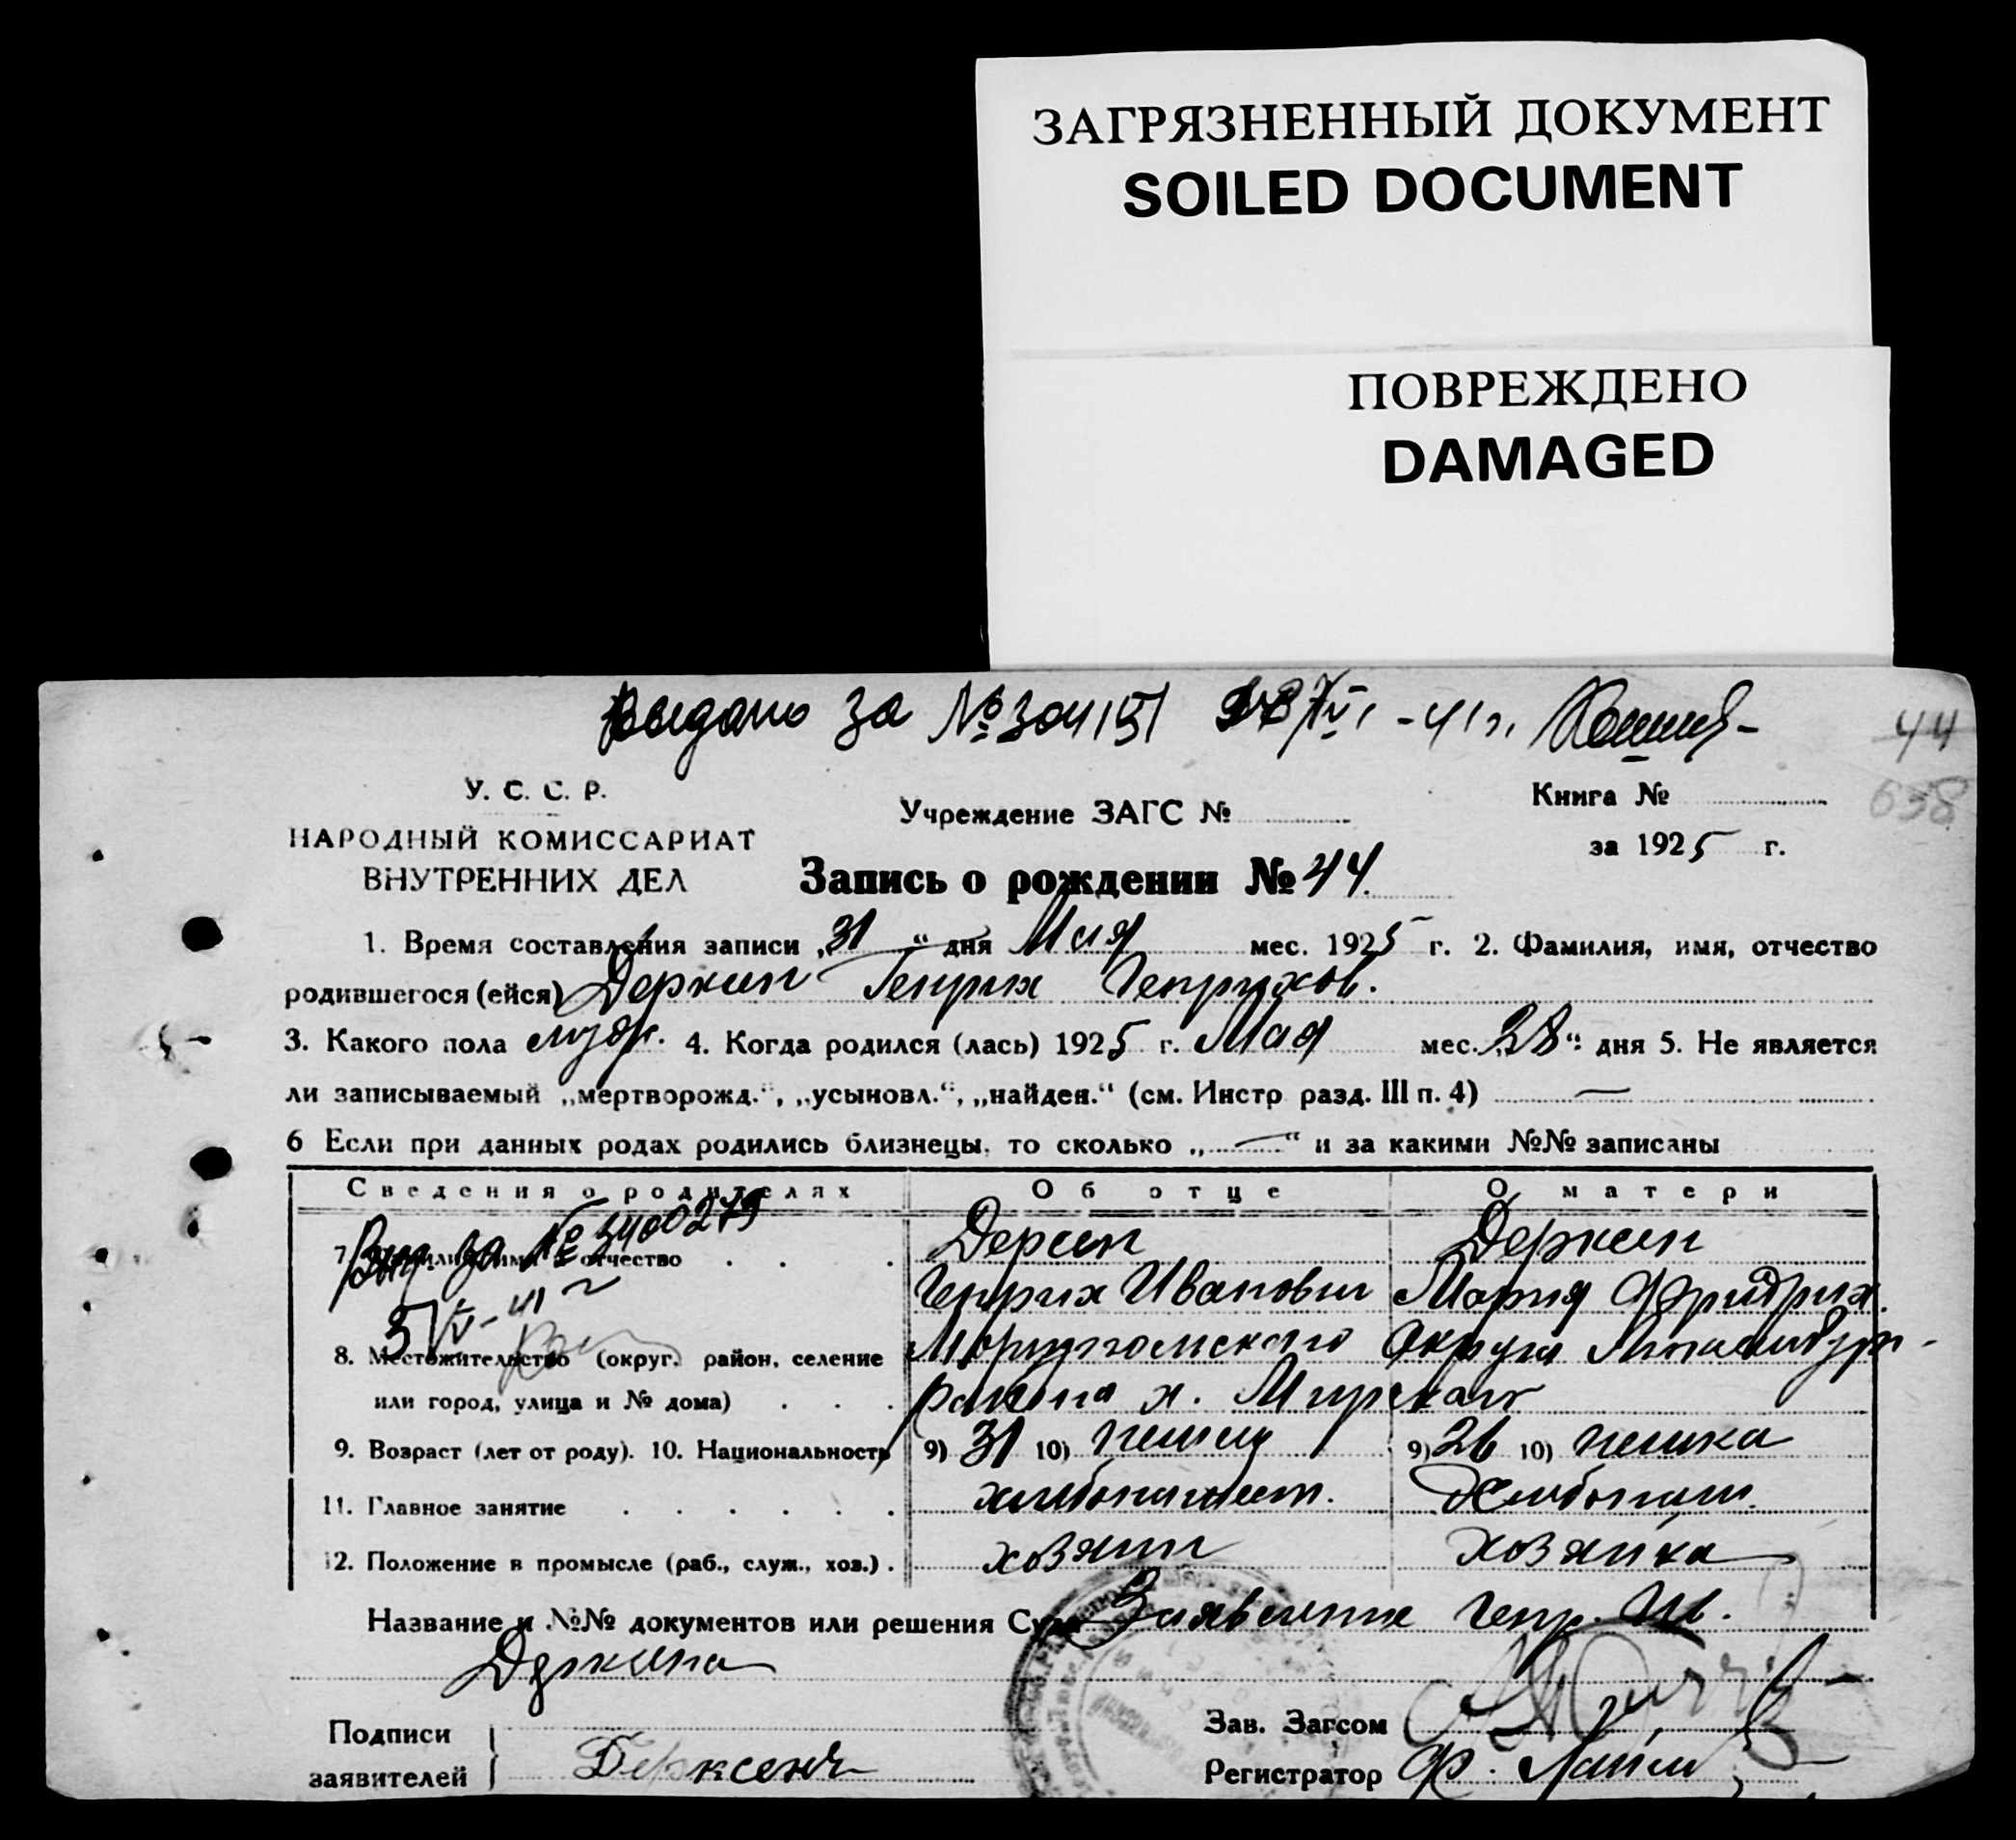 ЗАГРЯЗНЕННЫЙ ДОКУМЕНТ
SOILED DOCUMENT
ПОВРЕЖДЕНО
DAMAGED
Выдано за № 304151 -41 г.
44
658
У. С. С. Р.
НАРОДНЫЙ КОМИССАРИАТ
ВНУТРЕННИХ ДЕЛ
Учреждение ЗАГС №
Книга №
за 1925 г.
Запись о рождении № 44.
1. Время составления записи „31“ дня Мая мес. 1925 г. 2. Фамилия, имя, отчество
родившегося (ейся) Деркин Генрих Генрихов.
3. Какого пола муж. 4. Когда родился (лась) 1925 г. Мая мес. „28“ дня 5. Не является
ли записываемый „мертворожд.“, „усыновл.“, „найден.“ (см. Инстр разд. III п. 4) —
6 Если при данных родах родились близнецы, то сколько „—“ и за какими №№ записаны
Сведения о родителях Об отце О матери
Выд. за № 3400279
7. Фамилия, имя и отчество . . . Деркин Деркин
Генрих Иванович Мария Фридрих.
8. Местожительство (округ, район, селение Мариупольского Округа
или город, улица и № дома) . . . района х.
9. Возраст (лет от роду). 10. Национальность 9) 31 10) немец 9) 26 10) немка
11. Главное занятие . . . . . . хлебопашест. Хлебопаш.
12. Положение в промысле (раб., служ., хоз.) . хозяин хозяйка
Название и №№ документов или решения Суда Заявление Генр. Ив.
Деркина
Подписи
заявителей
Дерксенъ
Зав. Загсом
Регистратор Ф.